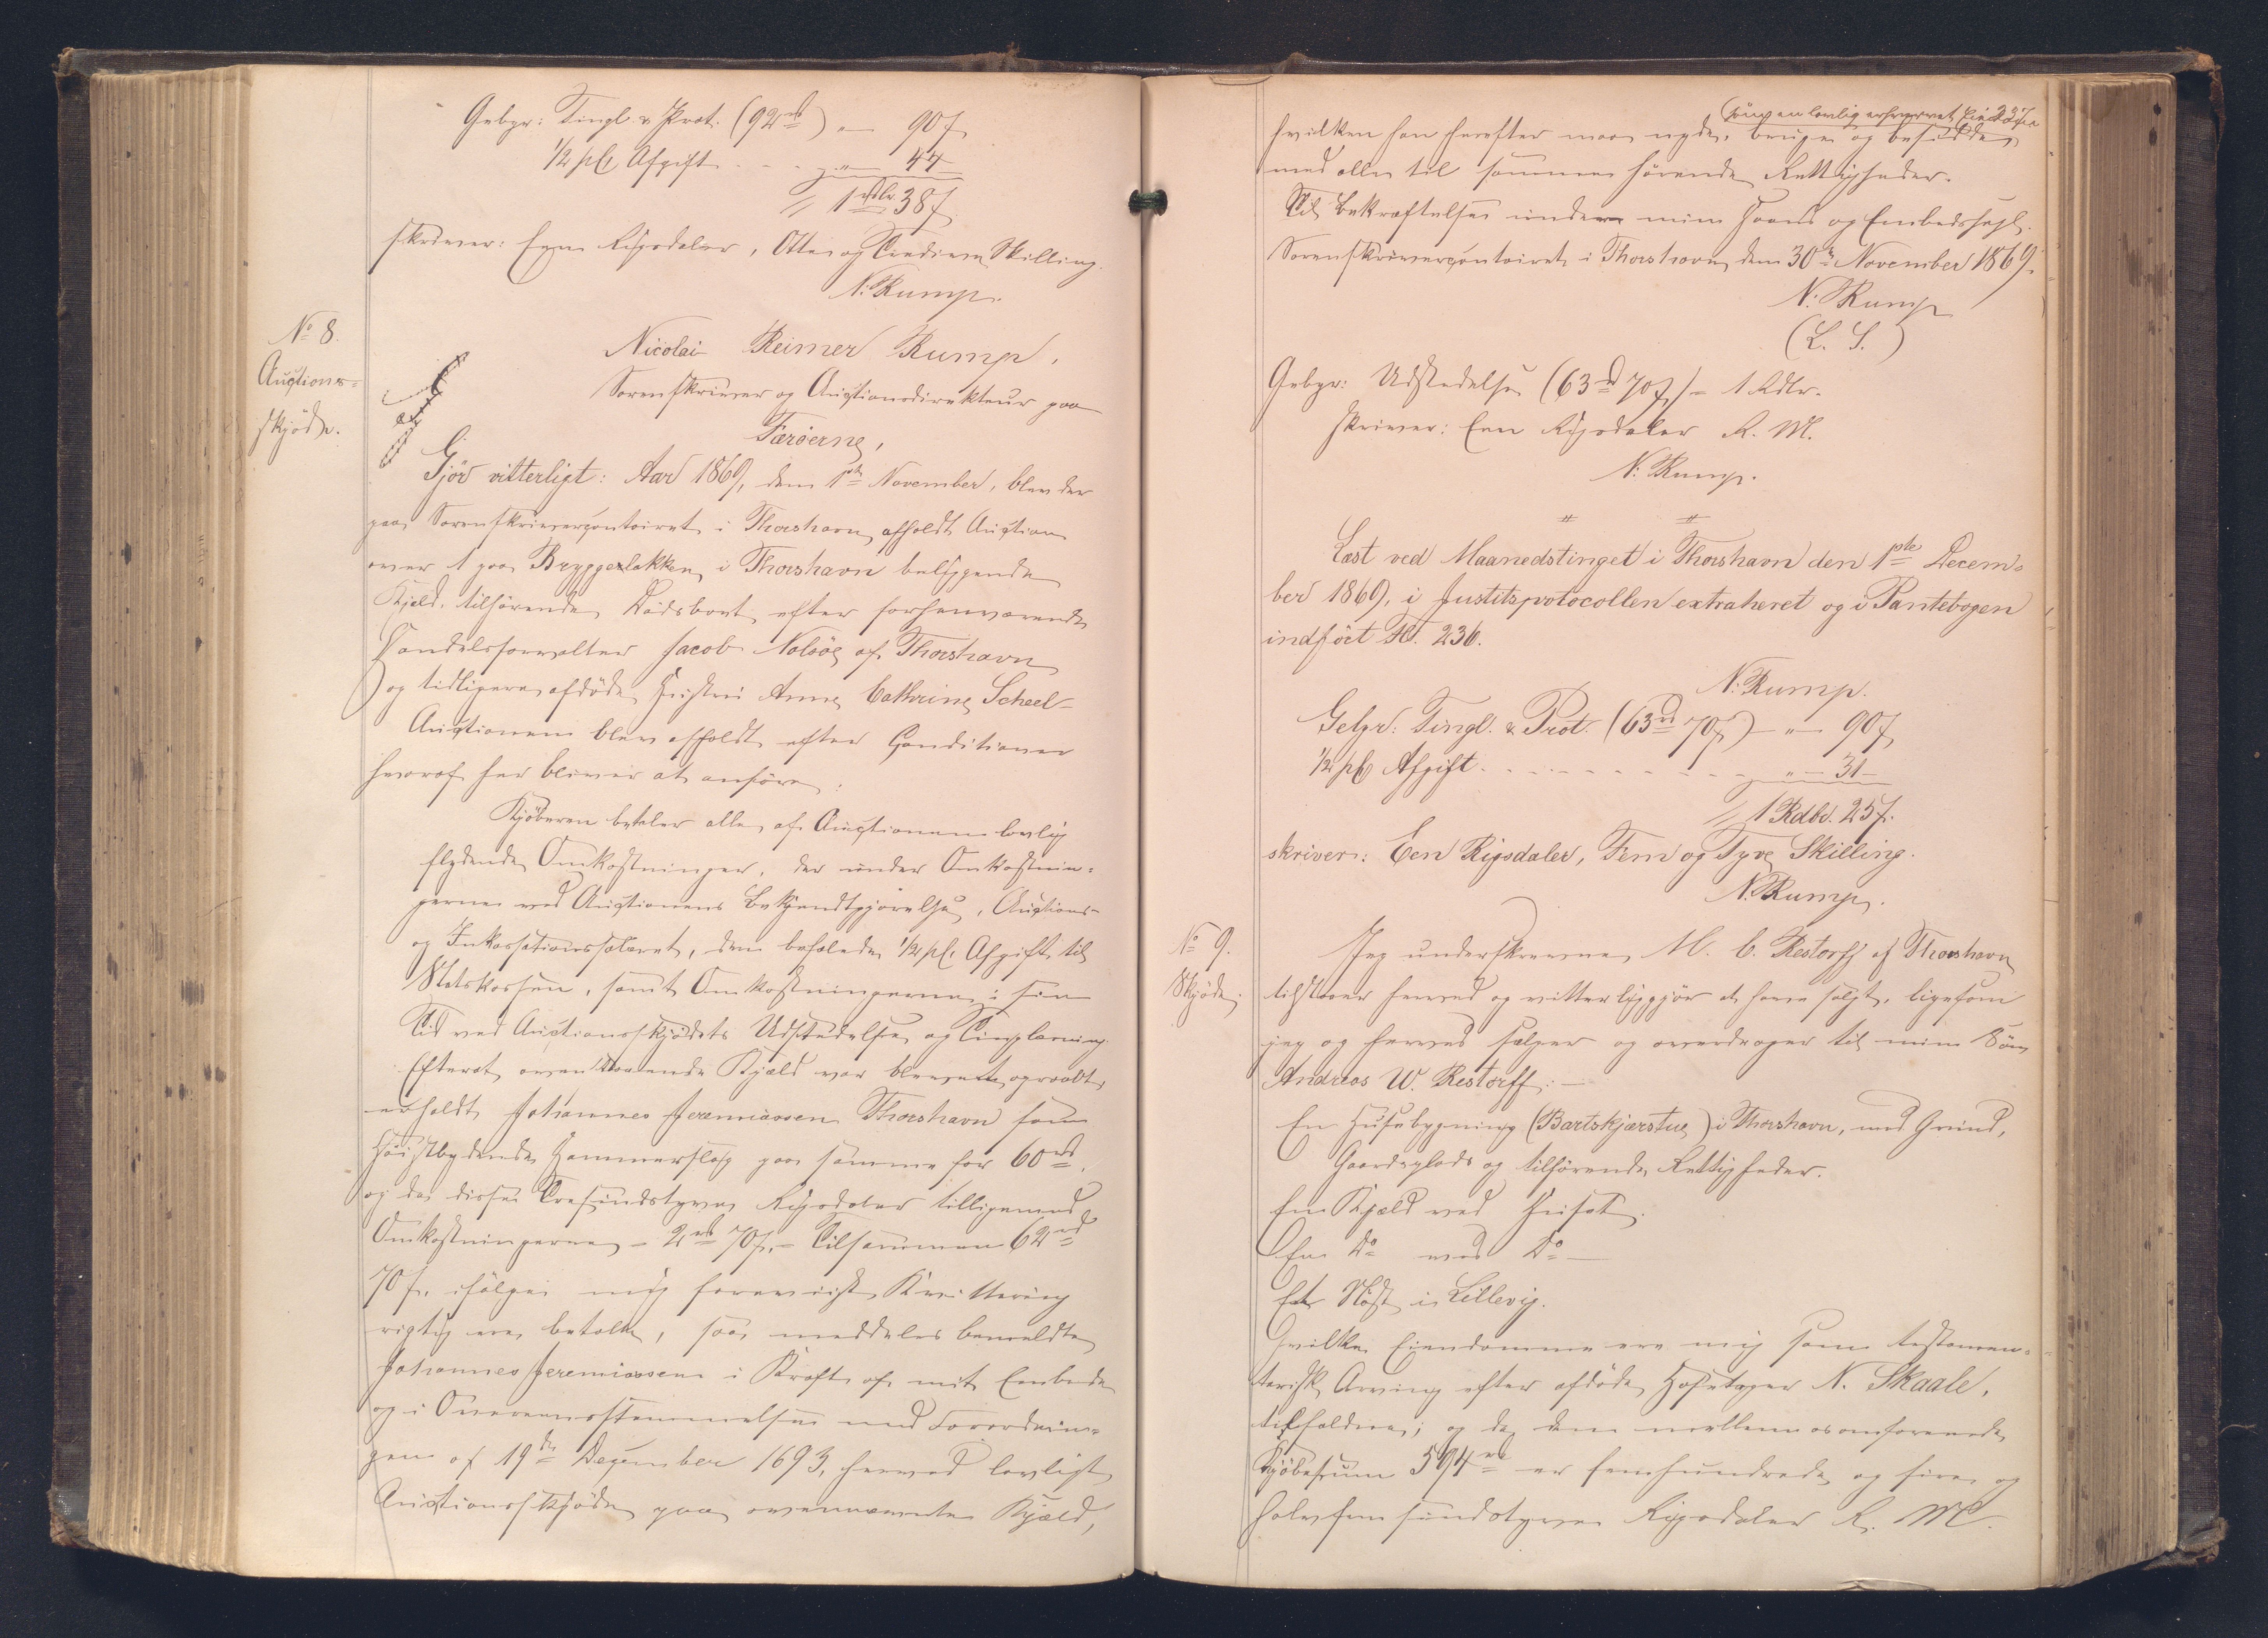 Gebyr: Tingl. & Prot. (92rd) " — 90 s
1/2 pCt Afgift - - - " — 44 —
1 rdlr. 38 s
skriver: Een Rigsdaler, Otte og Tredive Skilling.
N. Rump.
No 8.
Auctions=
skjøde.
Nicolai Reimer Rump,
Sorenskriver og Auctionsdirekteur paa
Færøerne,
Gjør vitterligt: Aar 1869, den 1ste November, blev der
paa Sorenskrivercontoiret i Thorshavn afholdt Auction
over 1 paa Bryggerbakken i Thorshavn beliggende
Kjeld, tilhørende Dødsboet efter forhenværende
Handelsforvalter Jacob Nolsøe af Thorshavn
og tidligere afdøde Hustru Anne Cathrine Scheel —
Auctionen blev afholdt efter Conditioner
hvoraf her bliver at anføre:
Kjøberen betaler alle af Auctionen lovlig
flydende Omkostninger, der under Omkostnin=
gerne ved Auctionens Bekjendtgjørelse, Auctions-
og Inkassationssalæret, den befalede 1/2 pCt. Afgift til
Statskassen, samt Omkostningerne i sin
Tid ved Auctionsskjødets Udstedelse og Tinglæsning.
Efterat ovennævnte Kjæld var bleven opraabt,
erholdt Johannes Jeremiassen Thorshavn som
Høistbydende Hammerslag paa samme for 60 rd,
og da disse Tresindstyve Rigsdaler tilligemed
Omkostningerne — 2 rd 70 s, — Tilsammen 62 rd
70 s, ifølge mig foreviist Kvittering
rigtig ere betalte, saa meddeles bemeldte
Johannes Jeremiassen i Kraft af mit Embede
og i Overeensstemmelse med Forordnin=
gen af 19de December 1693, herved lovligt
Auctionsskjøde paa ovennævnte Kjæld,
237
hvilken han herefter maa nyde, bruge og besidde
som en lovlig erhvervet Eiendom
med alle til samme hørende Rettigheder.
Til Bekræftelse under min Haand og Embedssegl.
Sorenskrivercontoiret i Thorshavn, den 30te November 1869.
N. Rump
(L. S.)
Gebyr: Udstedelse (63 rd 70 s) = 1 Rdlr.
skriver: Een Rigsdaler R. M.
N. Rump.
Læst ved Maanedstinget i Thorshavn den 1ste Decem=
ber 1869, i Justitsprotocollen extraheret og i Pantebogen
indført Fol. 236.
N. Rump.
Gebyr: Tingl. & Prot. (63 rd 70 s) — " — 90 s
1/2 pCt Afgift - - - - - - " — 31 —
1 Rdlr. 25 s.
skriver: Een Rigsdaler, Fem og Tyve Skilling.
N. Rump.
No 9.
Skjøde.
Jeg underskrevne, M. C. Restorff af Thorshavn
tilstaaer herved og vitterliggjør at have solgt, ligesom
jeg og herved sælger og overdrager til min Søn
Andreas W. Restorff: —
En Huusbygning (Bartskjærstue) i Thorshavn, med Grund,
Gaardsplads og tilhørende Rettigheder.
En Kjæld ved Huset.
En Do ved Do —
Et Nøst i Lillevig.
Hvilke Eiendomme ere mig som testamen=
tarisk Arving efter afdøde N. Skaale,
tilfaldne; og da den mellem os omforenede
Kjøbesum 594 rd er femhundrede og fire og
halvfemsindstyve Rigsdaler R. M.